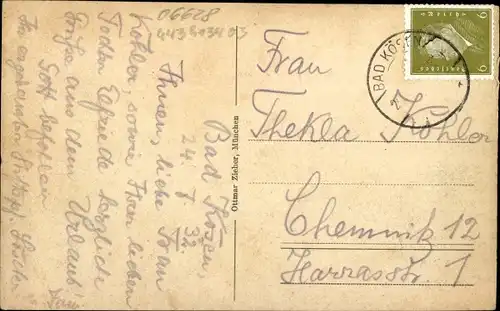 06628
Bad Kösen,
24. 7. 32
Ihnen, liebe Frau
Köhler, sowie Ihren lieben
Elfriede herzliche
Grüße aus dem Urlaub!
Gott befohlen
Ottmar Zieher, München
BAD KÖSEN
Deutsches Reich
6 6
Frau
Thekla Köhler
Chemnitz 12
Harrasstr. 1